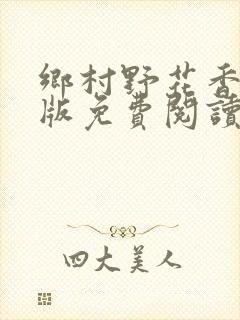 鄉村野花香
版免費閱讀
四大美人